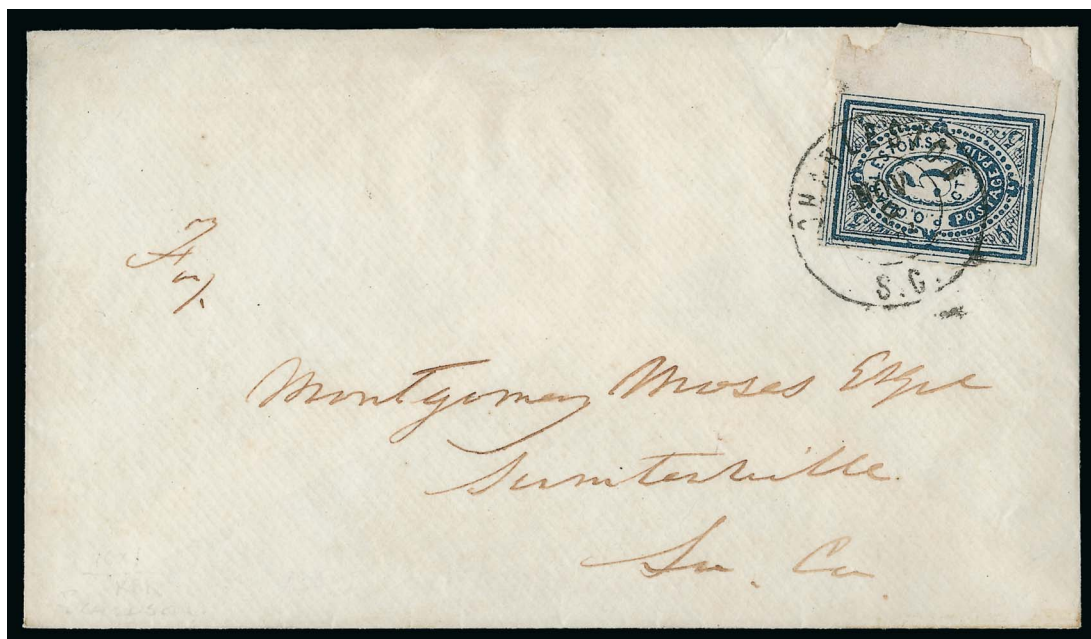 CHARLESTON
S.C.
P.O. CHARLESTON, S.C.
POSTAGE PAID
5
CTS
Montgomery Moses Esqr
Sumterville
So. Ca